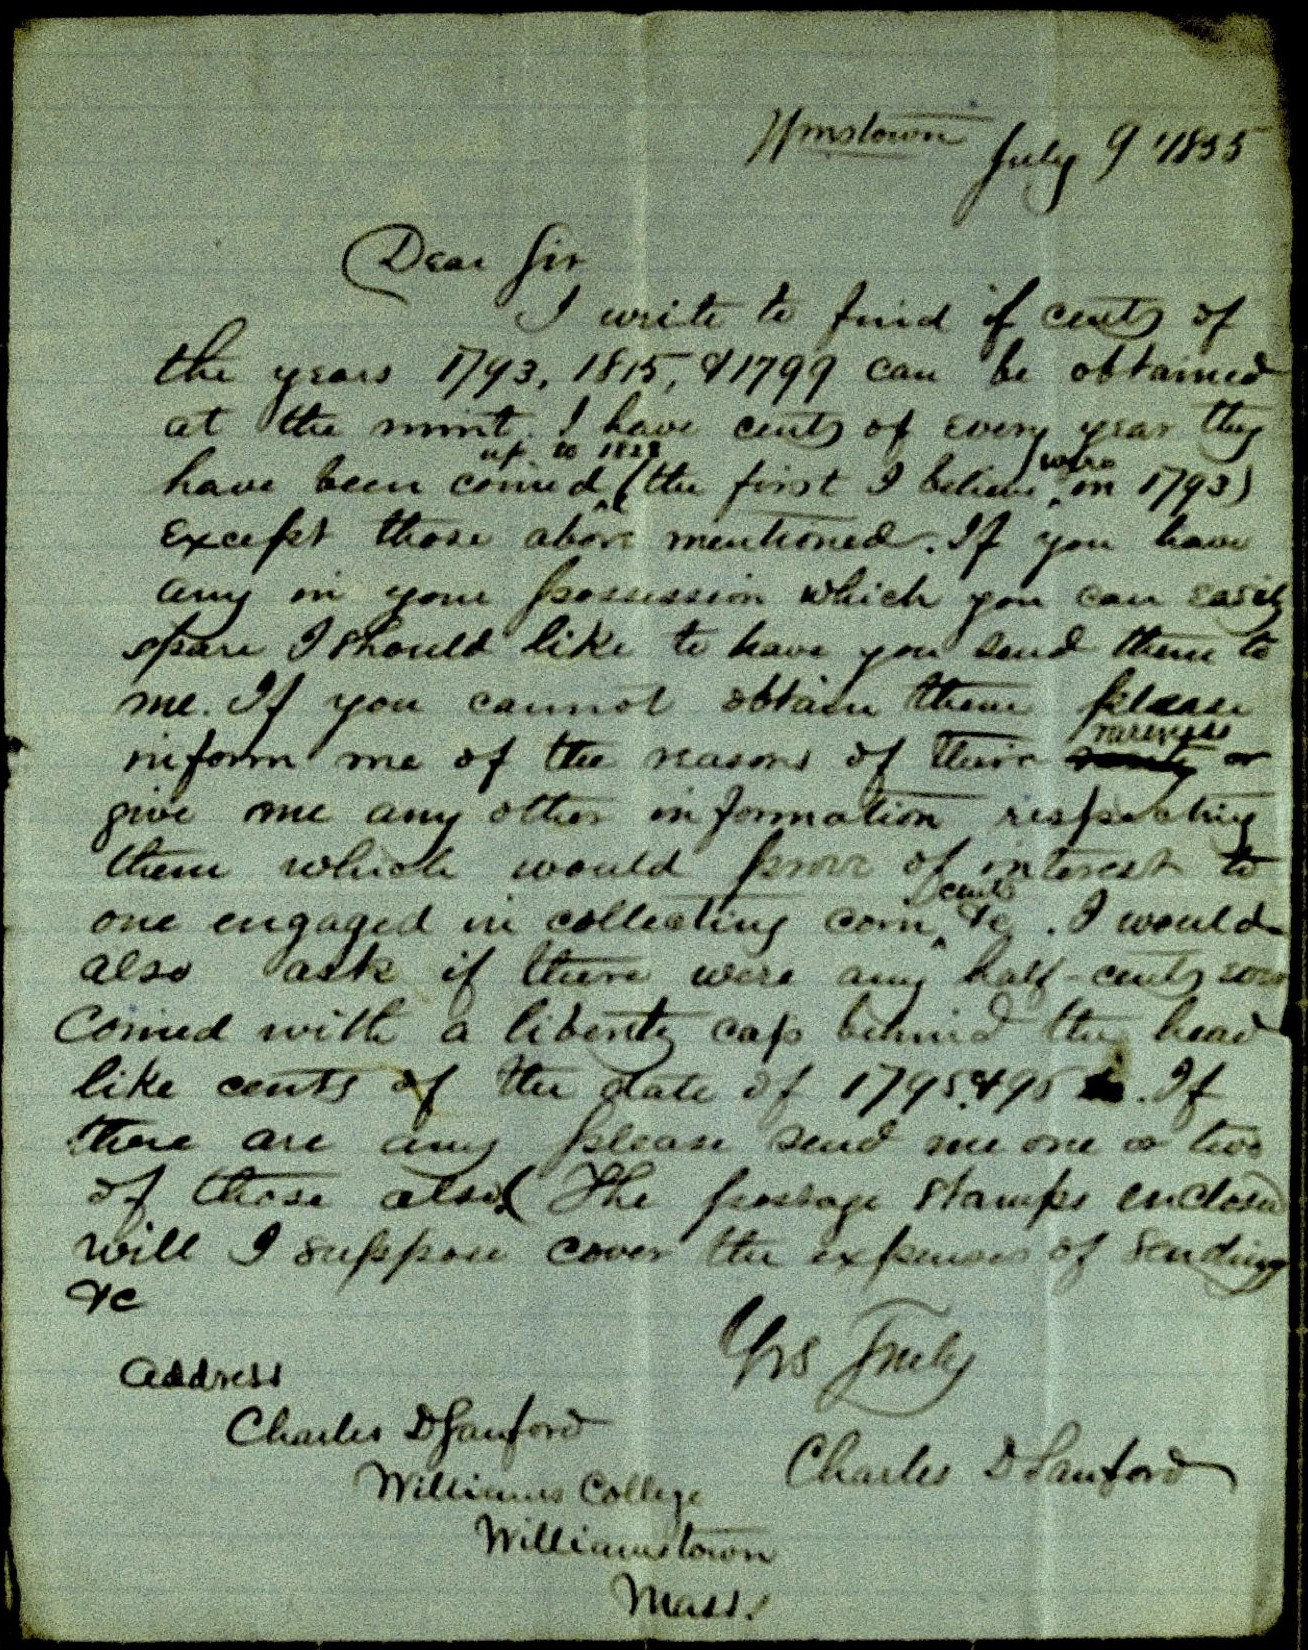 Wmstown July 9 1855
Dear Sir
I write to find if cents of
the years 1793, 1815, & 1799 can be obtained
at the mint. I have cents of every year they
up to 1828 were
have been coined (the first I believe in 1793)
except those above mentioned. If you have
any in your possession which you can easily
spare I should like to have you send them to
me. If you cannot obtain them please
rareness
inform me of the reasons of their or
give me any other information respecting
them which would prove of interest to
cents
one engaged in collecting coin, &c. I would
also ask if there were any half-cents ever
Coined with a liberty cap behind the head
like cents of the date of 1795 & 95 . If
there are any please send me one or two
of those also. The postage stamps enclosed
will I suppose cover the expenses of sending
&c
Yrs Truly
Charles D Sanford
Address
Charles D Sanford
Williams College
Williamstown
Mass.